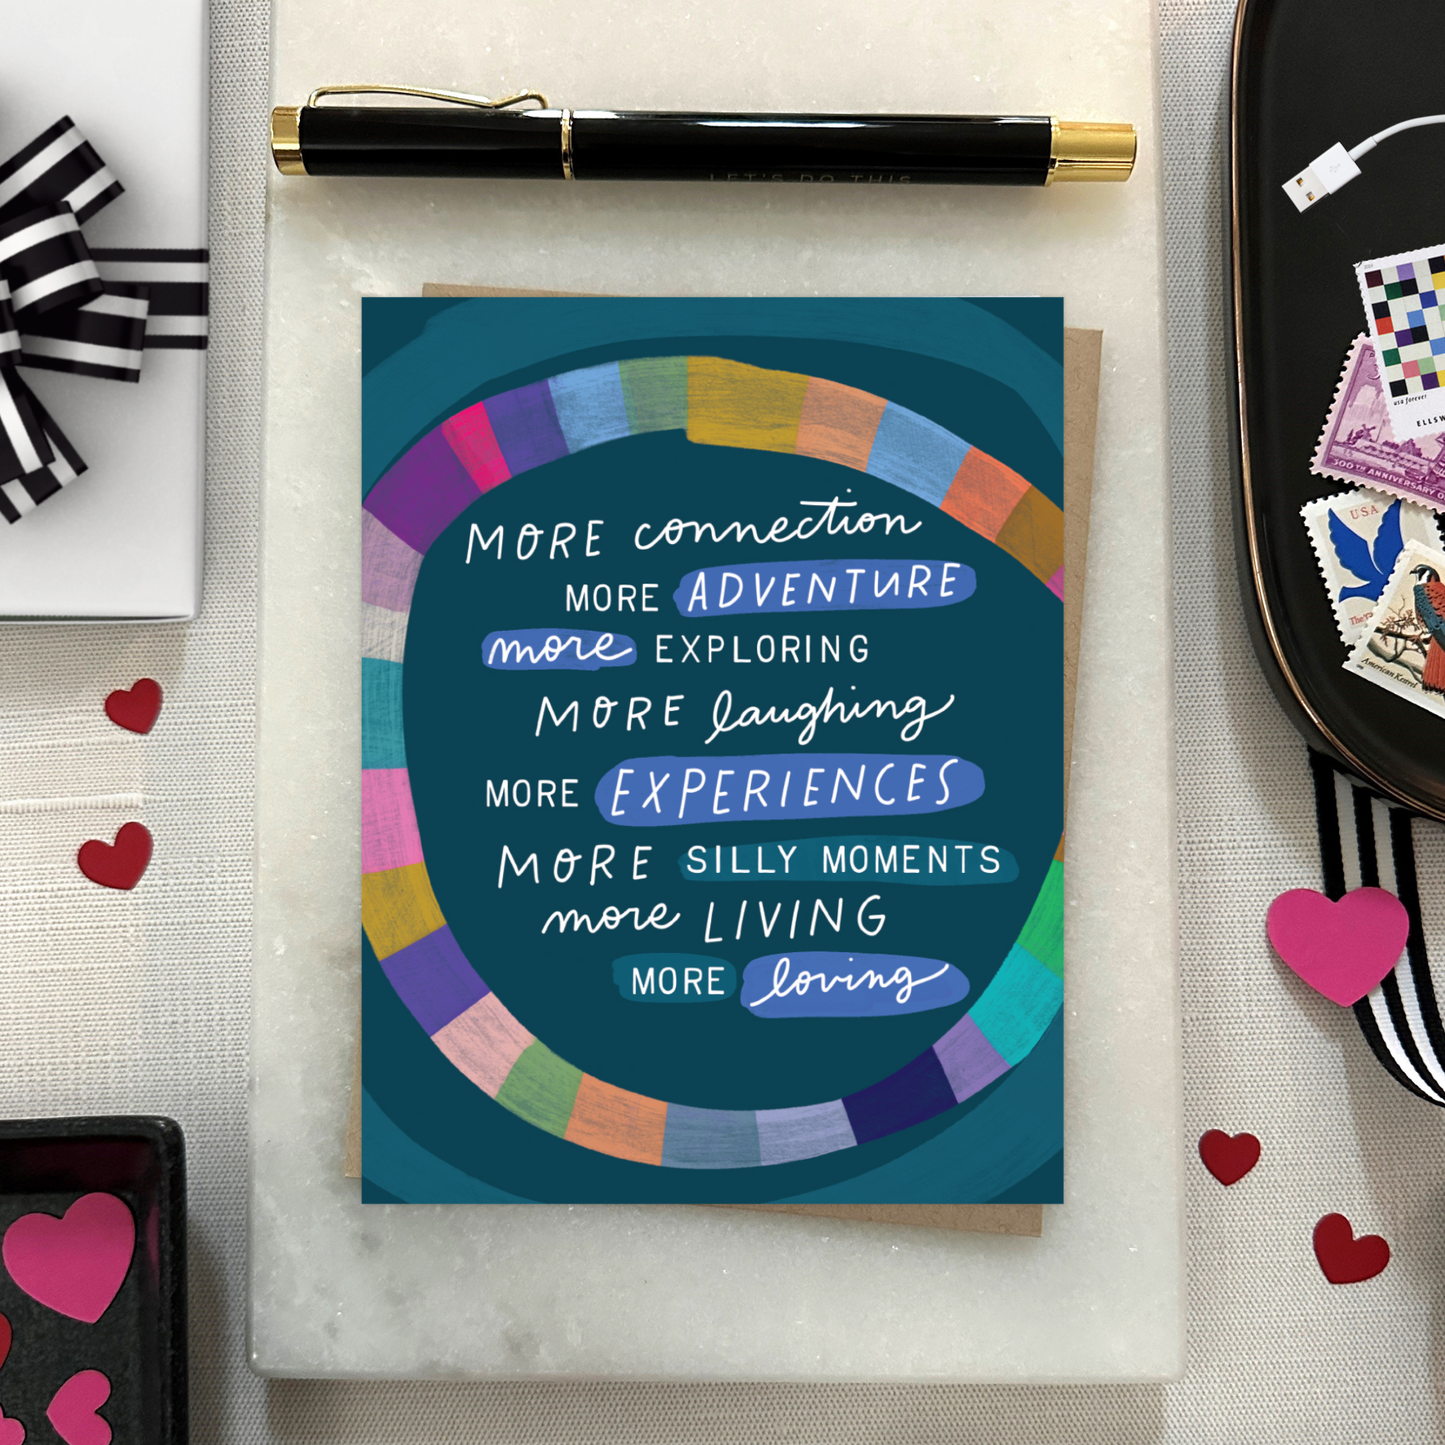 LET'S DO THIS
MORE connection
MORE ADVENTURE
more EXPLORING
MORE laughing
MORE EXPERIENCES
MORE SILLY MOMENTS
more LIVING
MORE loving
usa forever
ELLSW
300TH ANNIVERSARY O
USA
American Kestrel